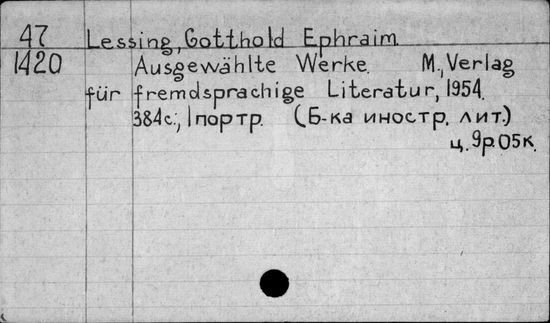 47 Lessing, Gotthold Ephraim
1420 Ausgewählte Werke. M., Verlag
für fremdsprachige Literatur, 1954.
384с.; 1 портр. (Б-ка иностр. лит.)
ц. 9р.05к.